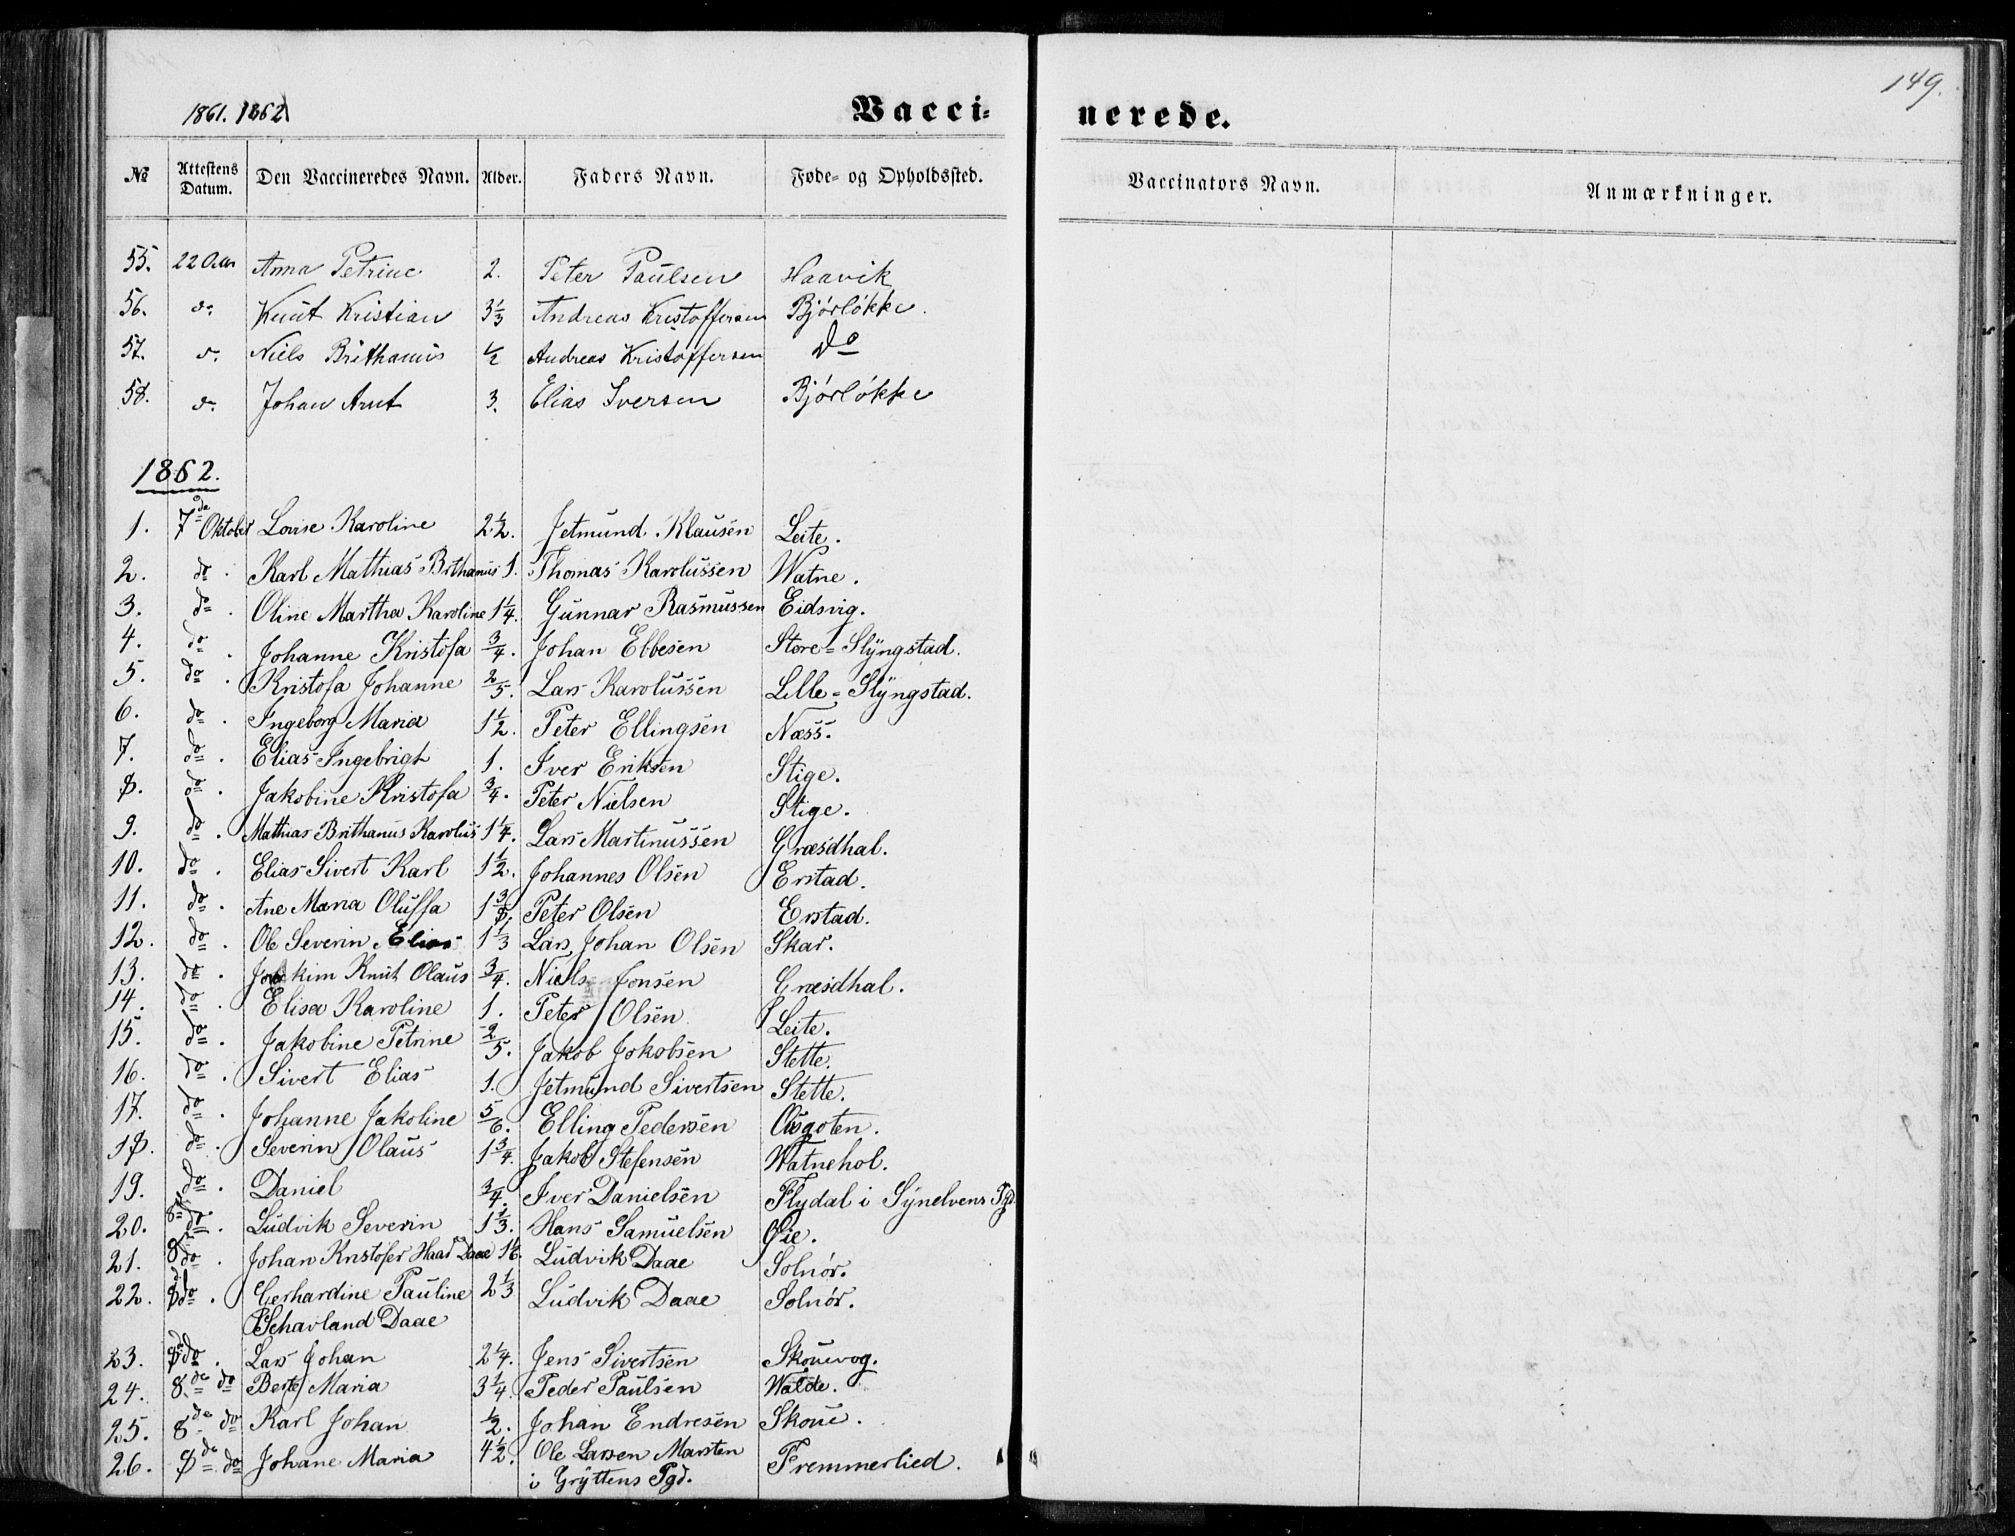 149.
1861. 1862
Vacci=nerede.
No Attestens Datum. Den Vaccineredes Navn. Alder. Faders Navn. Føde- og Opholdssted. Vaccinators Navn. Anmærkninger.
55. 22 Anna Petrine 2. Peter Paulsen Haavik
56. do Knut Kristian 3 1/3 Andreas Kristoffersen Bjørløkke.
57. do Niels Brithanus 1/2 Andreas Kristoffersen Do
58. do Johan Arnt 3. Elias Iversen Bjørløkke
1862.
1. 7de Oktober Lovise Karoline 2 1/2. Jetmund Klausen Leite.
2. do. Karl Mathias Brithanus 1. Thomas Karolussen Watne.
3. do. Oline Martha Karoline 1 1/4. Gunnar Rasmussen Eidsvig.
4. do. Johanne Kristofa 3/4. Johan Ebbesen Store=Slyngstad.
5. do. Kristofa Johanne 2/5. Lars Karolussen Lille=Slyngstad.
6. do. Ingeborg Maria 1 1/2. Peter Ellingsen Næss.
7. do. Elias Ingebrigt 1. Iver Eriksen Stige.
8. do. Jakobine Kristofa 3/4. Peter Nielsen Stige.
9. do. Mathias Brithanus Karolus 1 1/4. Lars Martinussen Græsdhal.
10. do. Elias Sivert Karl 1 1/2. Johannes Olsen Erstad.
11. do. Ane Maria Oluffa 1 3/8. Peter Olsen Erstad.
12. do. Ole Severin Elias 1 1/3 Lars Johan Olsen Skar.
13. do. Joakim Knut Olaus 3/4. Niels Jonsen Græsdhal.
14. do. Elisa Karoline 1. Peter Olsen Leite.
15. do. Jakobine Petrine 2/5. Jakob Jokobsen Stette.
16. do. Sivert Elias 1. Jetmund Sivertsen Stette.
17. do. Johanne Jakoline 5/6. Elling Pedersen Osgoten.
18. do. Severin Olaus 1 3/4. Jakob Stefensen Watnehol.
19. do. Daniel 3/4. Iver Danielsen Flydal i Synelvens Pgd.
20. 8de do. Ludvik Severin 1 1/3. Hans Samuelsen Øie.
21. 8de do. Johan Kristofer Haar Daae 1/6. Ludvik Daae Solnør.
22. 8de do. Gerhardine Pauline 2 1/3 Ludvik Daae Solnør.
Schavland Daae
23. 8de do. Lars Johan 2 1/4. Jens Sivertsen Skouevog.
24. 8de do Berte Maria 3 1/4. Peder Paulsen Walde.
25. 8de do Karl Johan 1/2. Johan Endresen Skoue.
26. 8de do Johane Maria 4 1/2. Ole Larsen Marsten Fremmerlied.
i Gryttens Pgd.